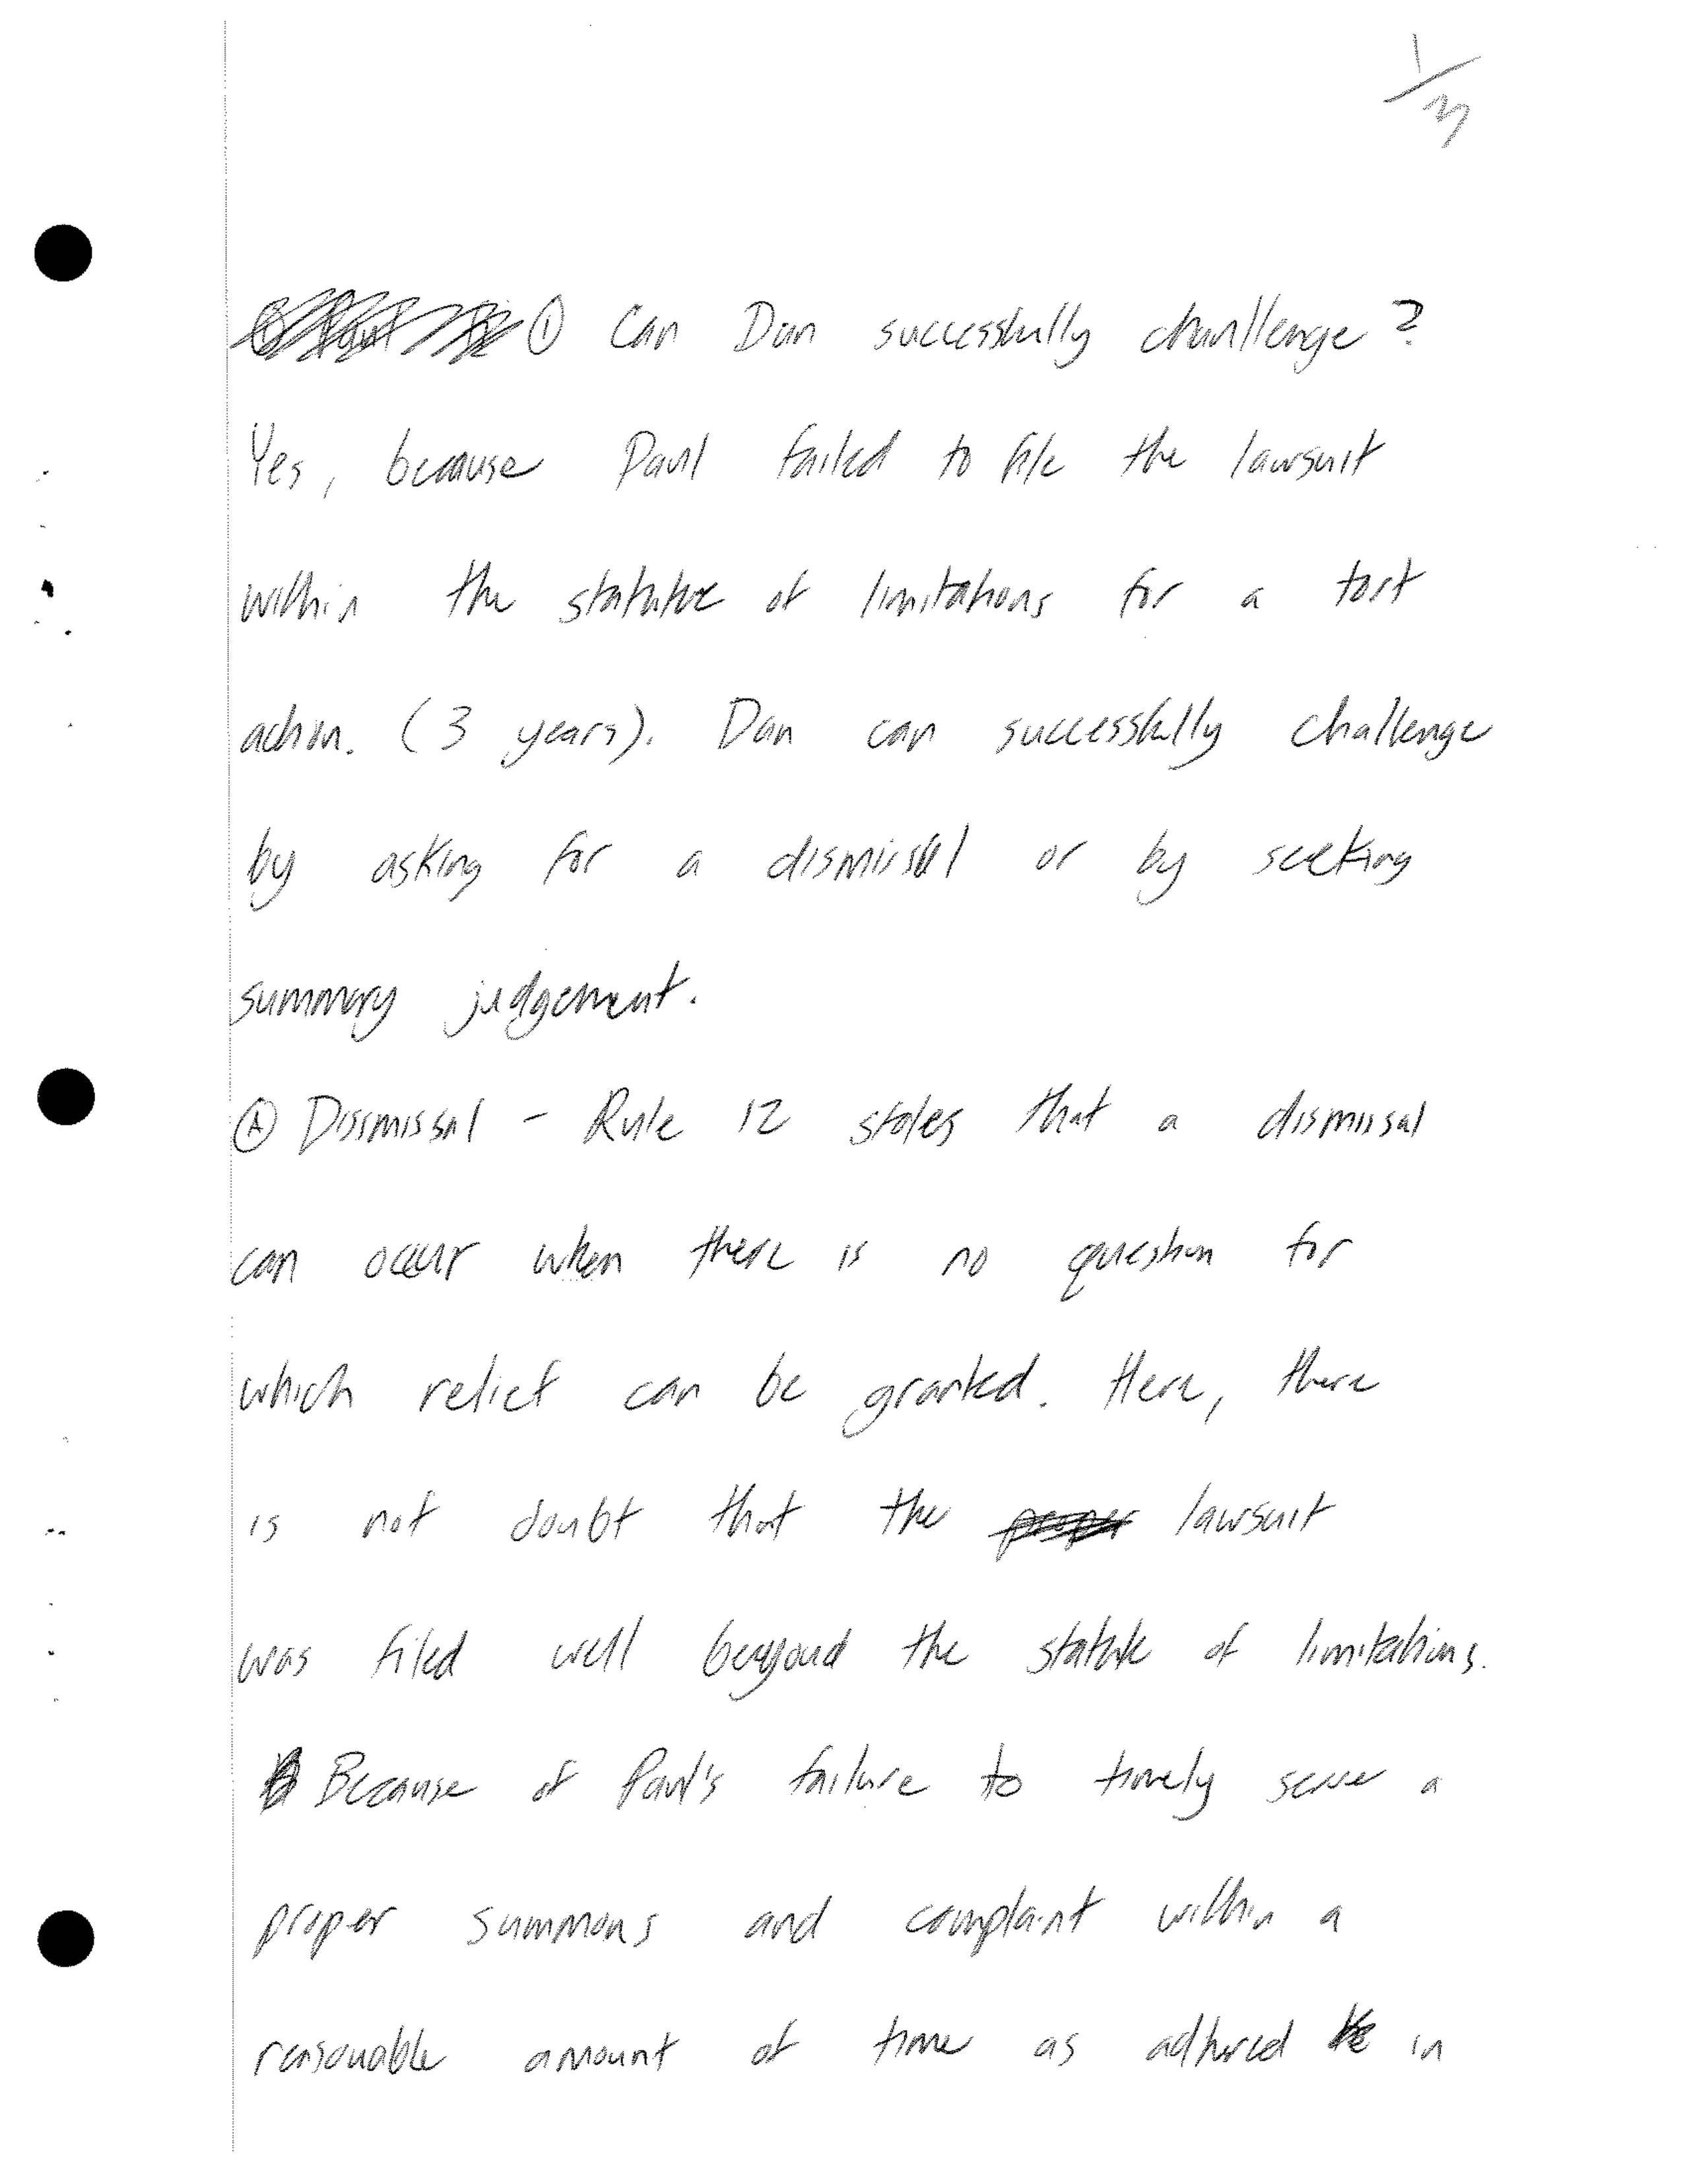 1/3
① Can Dan successfully chanllenge?
Yes, because Paul failed to file the lawsuit
within the statute of limitations for a tort
action. (3 years). Dan can successfully challenge
by asking for a dismissal or by seeking
summary judgement.
Ⓐ Dismissal - Rule 12 states that a dismissal
can occur when there is no question for
which relief can be granted. Here, there
is not doubt that the lawsuit
was filed well beyond the statute of limitations.
Because of Paul's failure to timely serve a
proper summons and complaint within a
reasonable amount of time as adhered in